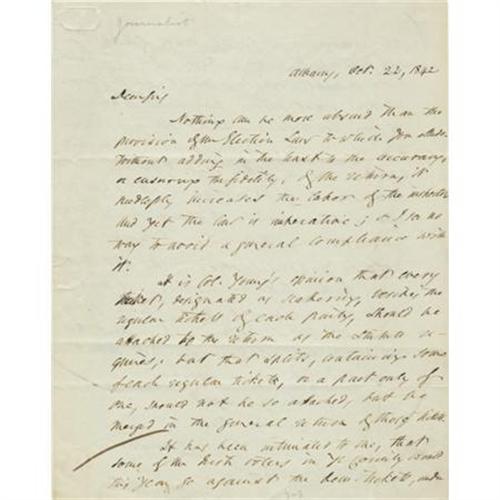 Journalist
Albany, Oct. 22, 1842
Dear Sir
Nothing can be more absurd than the
provision of the Election Law to which you allude.
Without adding in the least to the accuracy,
or ensuring the fidelity, of the return, it
needlessly increases the labor of the
and yet the law is imperative; & I see no
way to avoid a general compliance with
it.
It is Col. Young's opinion that every
ticket, designated as besides the
regular tickets of each party, should be
attached to the return as the statute re-
quires; but that splits, containing some
of each regular ticket, or a part only of
one, should not be so attached, but be
merged in the general return of those
It has been intimated to me, that
some of the Irish voters in yr County would
this year go against the Dem. ticket,